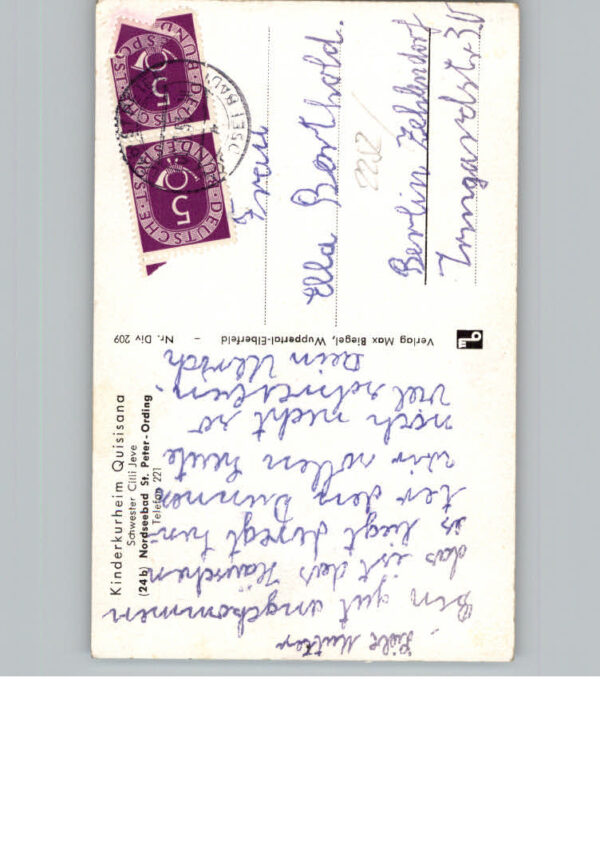 Kinderkurheim Quisisana
Schwester Cilli Jeve
(24b) Nordseebad St. Peter-Ording
Telefon 221
Liebe Mutter
Bin gut angekommen
das ist das Häuschen
is liegt direkt hin-
ter den Dünnen
wir sollen heute
noch nicht so
viel schreiben.
Dein Ulrich
Verlag Max Biegel, Wuppertal-Elberfeld - Nr. Div 209
mb
DEUTSCHE BUNDESPOST
5
DEUTSCHE BUNDESPOST
5
Frau
Ella Berthold.
Berlin Zehlendorf
Irmgardstr. 3